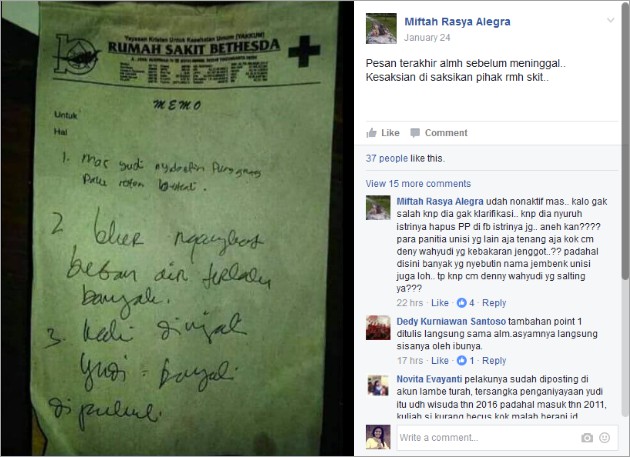 Yayasan Kristen Untuk Kesehatan Umum (YAKKUM)
RUMAH SAKIT BETHESDA
MEMO
Untuk
Hal
1. Mas Yudi
rotan
2. leher ngangkat
beban air terlalu
banyak.
3. kaki diinjak
Yudi =
dipukul.
Miftah Rasya Alegra
January 24
Pesan terakhir almh sebelum meninggal..
Kesaksian di saksikan pihak rmh skit..
Like Comment
37 people like this.
View 15 more comments
Miftah Rasya Alegra udah nonaktif mas.. kalo gak
salah knp dia gak klarifikasi.. knp dia nyuruh
istrinya hapus PP di fb istrinya jg.. aneh kan????
para panitia unisi yg lain aja tenang aja kok cm
deni wahyudi yg kebakaran jenggot..?? padahal
disini banyak yg nyebutin nama jembenk unisi
juga loh.. tp knp cm denny wahyudi yg salting
ya???
22 hrs · Like · 4 · Reply
Dedy Kurniawan Santoso tambahan point 1
ditulis langsung sama alm.asyamnya langsung
sisanya oleh ibunya.
17 hrs · Like · 1 · Reply
Novita Evayanti pelakunya sudah diposting di
akun lambe turah, tersangka penganiyayaan yudi
itu udh wisuda thn 2016 padahal masuk thn 2011,
kuliah si kurang becus kok malah berani jd
Write a comment...